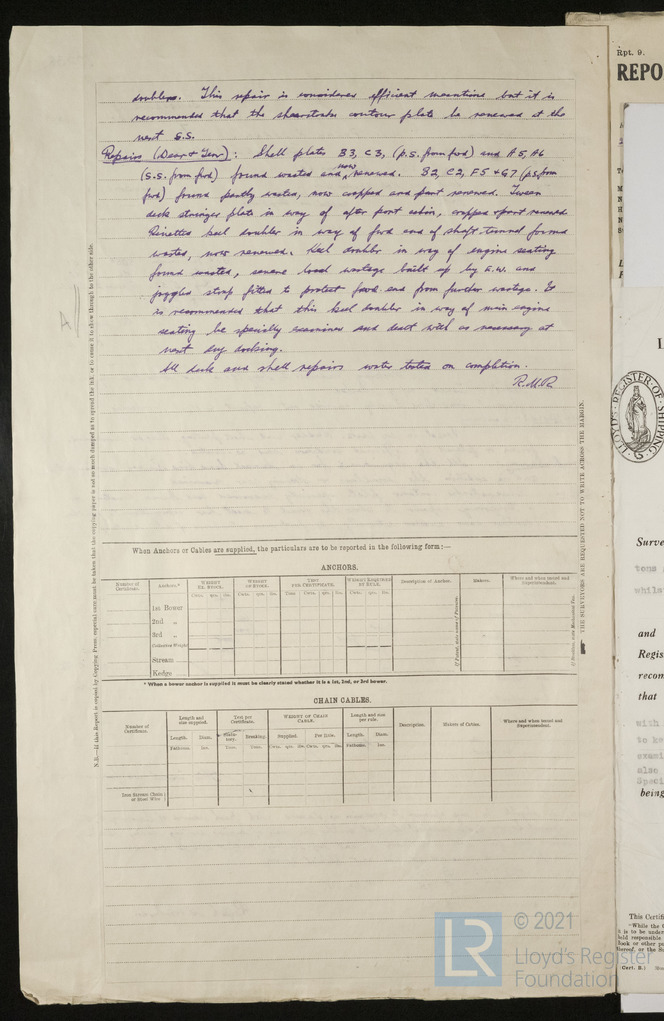 doublers. This repair is considered efficient meantime but it is
recommended that the sheerstrake contour plate be renewed at the
next S.S.
Repairs (Wear & Tear): Shell plates B3, C3, (p.s. from fwd) and A5, A6
(s.s. from fwd) found wasted and now renewed. B2, C2, F5 & G7 (p.s. from
fwd) found partly wasted, now cropped and part renewed. Tween
deck stringer plate in way of after port cabin, cropped & part renewed.
Rivetted keel doubler in way of fwd end of shaft tunnel found
wasted, now renewed. Keel doubler in way of engine seating
found wasted, severe local wastage built up by E.W. and
joggled strap fitted to protect fwd end from further wastage. It
is recommended that this keel doubler in way of main engine
seating be specially examined and dealt with as necessary at
next dry docking.
All deck and shell repairs water tested on completion.
R.M.R.
N.B.—If this Report is copied by Copying Press, special care must be taken that the copying paper is not so much damped as to spread the ink or to cause it to show through to the other side.
THE SURVEYORS ARE REQUESTED NOT TO WRITE ACROSS THE MARGIN.
When Anchors or Cables are supplied, the particulars are to be reported in the following form:—
ANCHORS.
Number of Certificate.
Anchors.*
WEIGHT EX. STOCK.
WEIGHT OF STOCK.
TEST PER CERTIFICATE.
WEIGHT REQUIRED BY RULE.
Description of Anchor.
Makers.
Where and when tested and Superintendent.
Cwts. qrs. lbs.
Cwts. qrs. lbs.
Tons. Cwts. qrs. lbs.
Cwts. qrs. lbs.
1st Bower
2nd „
3rd „
Collective Weight
Stream
Kedge
* When a bower anchor is supplied it must be clearly stated whether it is a 1st, 2nd, or 3rd bower.
CHAIN CABLES.
Number of Certificate.
Length and size supplied.
Test per Certificate.
WEIGHT OF CHAIN CABLE.
Length and size per rule.
Description.
Makers of Cables.
Where and when tested and Superintendent.
Length. Diam. Statutory. Breaking. Supplied. Per Rule. Length. Diam.
Fathoms. Ins. Tons. Tons. Cwts. qrs. lbs. Cwts. qrs. lbs. Fathoms. Ins.
Iron Stream Chain or Steel Wire
Rpt. 9.
REPO
LLOYD'S REGISTER OF SHIPPING
Surve
tons
whils
and
Regis
recom
that
with
to
exami
also
Speci
being
This Certifi
"While the
it is to be under
held responsible
look or other
thereof, or the Su
Cert. B.
LR
© 2021
Lloyd's Register
Foundation